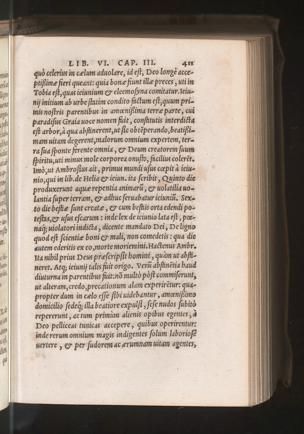 LIB. VI. CAP. III. 411
quò celerius in cælum aduolare, id est, Deo longè acce-
ptissimæ fieri queant: quia bonæ sunt illæ preces, uti in
Tobia est, quas ieiunium & eleemosyna comitatur. ieiu-
nij initium ab urbe statim condito factum est, quum pri-
mis nostris parentibus in amœnissima terræ parte, cui
paradisus Græca uoce nomen fuit, constitutis interdicta
est arbor, à qua abstinerent, ut sic obtēperando, beatissi-
mam uitam degerent, malorum omnium expertem, ter-
ra sua sponte ferente omnia, & Deum creatorem suum
spiritu, uti minus mole corporea onusto, facilius colerēt.
Imò, ut Ambrosius ait, primus mundi usus cœpit à ieiu-
nio, qui in lib. de Helia & ieiun. ita scribit, Quinto die
produxerunt aquæ repentia animarū, & uolatilia uo-
lantia super terram, & adhuc seruabatur ieiuniū. Sex-
to die bestiæ sunt creatæ, & cum bestijs orta edendi po-
testas, & usus escarum: inde lex de ieiunio lata est, pœ-
naq; uiolatori indicta, dicente mandato Dei, De ligno
quod est scientiæ boni & mali, non comedetis: qua die
autem ederitis ex eo, morte moriemini. Hactenus Ambr.
Ita nihil prius Deus præscripsit homini, quàm ut absti-
neret. Atq; ieiunij talis fuit origo. Verū abstinētia haud
diuturna in parentibus fuit: nō multò pòst commiserunt,
ut alteram, credo, precationum alam experirētur: qua-
propter dum in cælo esse sibi uidebantur, amœnissimo
domicilio sedeq; illa beatiore expulsi, sese nudos subitò
repererunt, ac tum primùm alienis opibus egentes, à
Deo pelliceas tunicas accepere, quibus operirentur:
inde rerum omnium magis indigentes solum laboriosè
uertere, & per sudorem ac ærumnam uitam agentes,